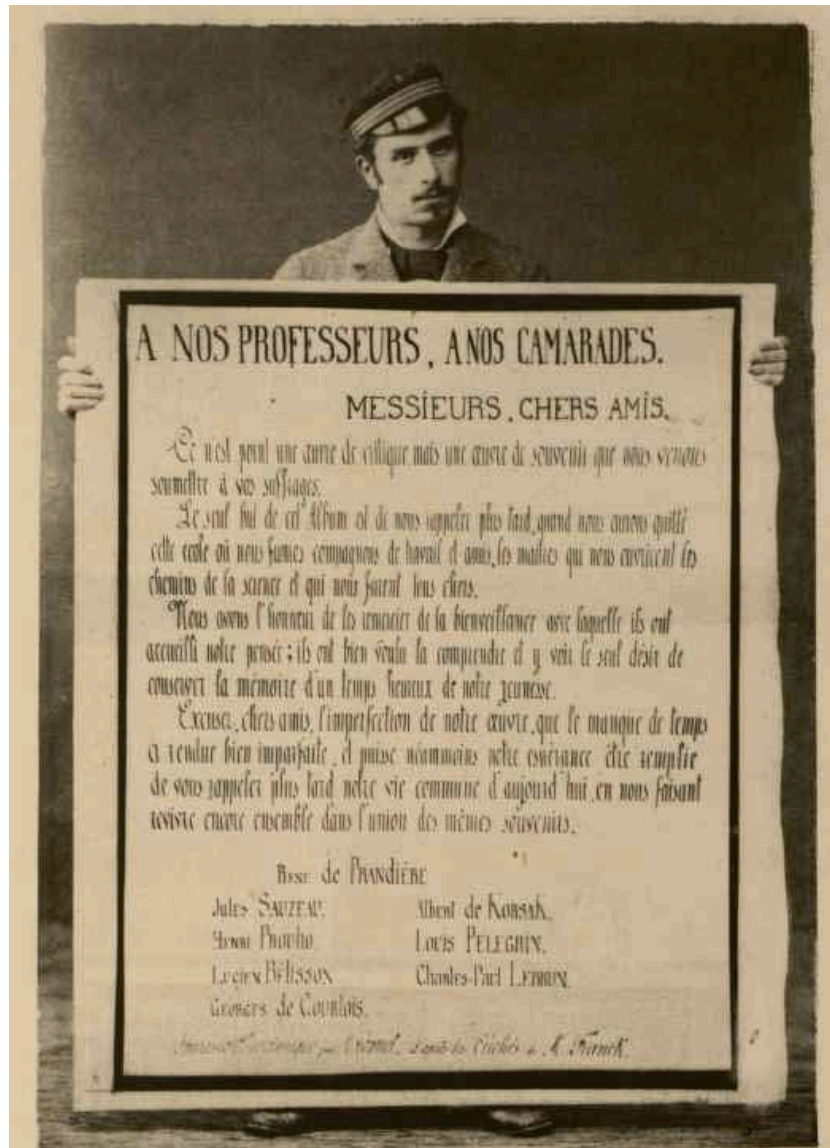 A NOS PROFESSEURS, A NOS CAMARADES.
MESSIEURS, CHERS AMIS.
Ce n'est point une œuvre de critique mais une œuvre de souvenir que nous venons
soumettre à vos suffrages.
Le seul but de cet Album est de nous rappeler plus tard, quand nous aurons quitté
cette école où nous fumes compagnons de travail et amis, les maîtres qui nous ouvrirent les
chemins de la science et qui nous furent tous chers.
Nous avons l'honneur de les remercier de la bienveillance avec laquelle ils ont
accueilli notre pensée; ils ont bien voulu la comprendre et y voir le seul désir de
conserver la mémoire d'un temps heureux de notre jeunesse.
Excusez, chers amis, l'imperfection de notre œuvre, que le manque de temps
a rendue bien imparfaite, et puisse néanmoins notre espérance être remplie
de vous rappeler plus tard notre vie commune d'aujourd'hui, en nous faisant
revivre encore ensemble dans l'union des mêmes souvenirs.
RENÉ de PRANDIÈRE
Jules SAUZEAU. Albert de KORSAK.
HENRI Louis PELEGRIN.
LUCIEN BÉLISSON Charles-Paul LEBRUN.
GEORGES de COURTOIS.
d'après les Clichés de M. Franck.